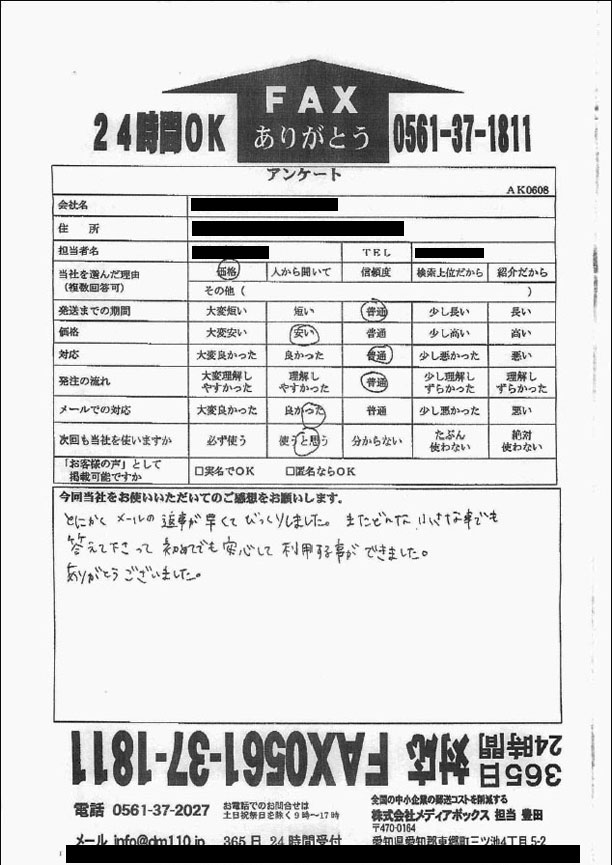 FAX
ありがとう
24時間OK
0561-37-1811
アンケート
AK0608
会社名
住 所
担当者名 TEL
当社を選んだ理由
(複数回答可)
価格 人から聞いて 信頼度 検索上位だから 紹介だから
その他 ( )
発送までの期間 大変短い 短い 普通 少し長い 長い
価格 大変安い 安い 普通 少し高い 高い
対応 大変良かった 良かった 普通 少し悪かった 悪い
発注の流れ 大変理解しやすかった 理解しやすかった 普通 少し理解しずらかった 理解しずらかった
メールでの対応 大変良かった 良かった 普通 少し悪かった 悪い
次回も当社を使いますか 必ず使う 使うと思う 分からない たぶん使わない 絶対使わない
「お客様の声」として
掲載可能ですか
□実名でOK □匿名ならOK
今回当社をお使いいただいてのご感想をお願いします。
とにかく メールの 返事が 早くて びっくりしました。 またどんな 小さな事でも
答えて下さって 初めてでも 安心して 利用する事が できました。
ありがとうございました。
365日
24時間
対応 FAX0561-37-1811
電話 0561-37-2027
お電話でのお問合せは
土日祝祭日を除く9時～17時
全国の中小企業の郵送コストを削減する
株式会社メディアボックス 担当 豊田
〒470-0164
メール info@dm110.jp 365日 24時間受付
愛知県愛知郡東郷町三ツ池4丁目5-2